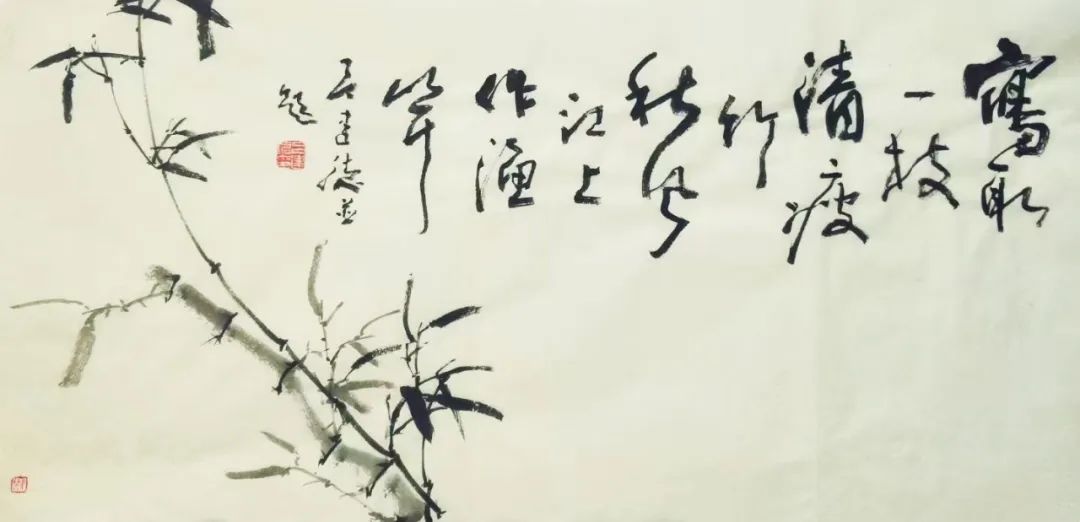 寫取
一枝
清瘦
竹
秋風
江上
作漁
竿
建德並
題